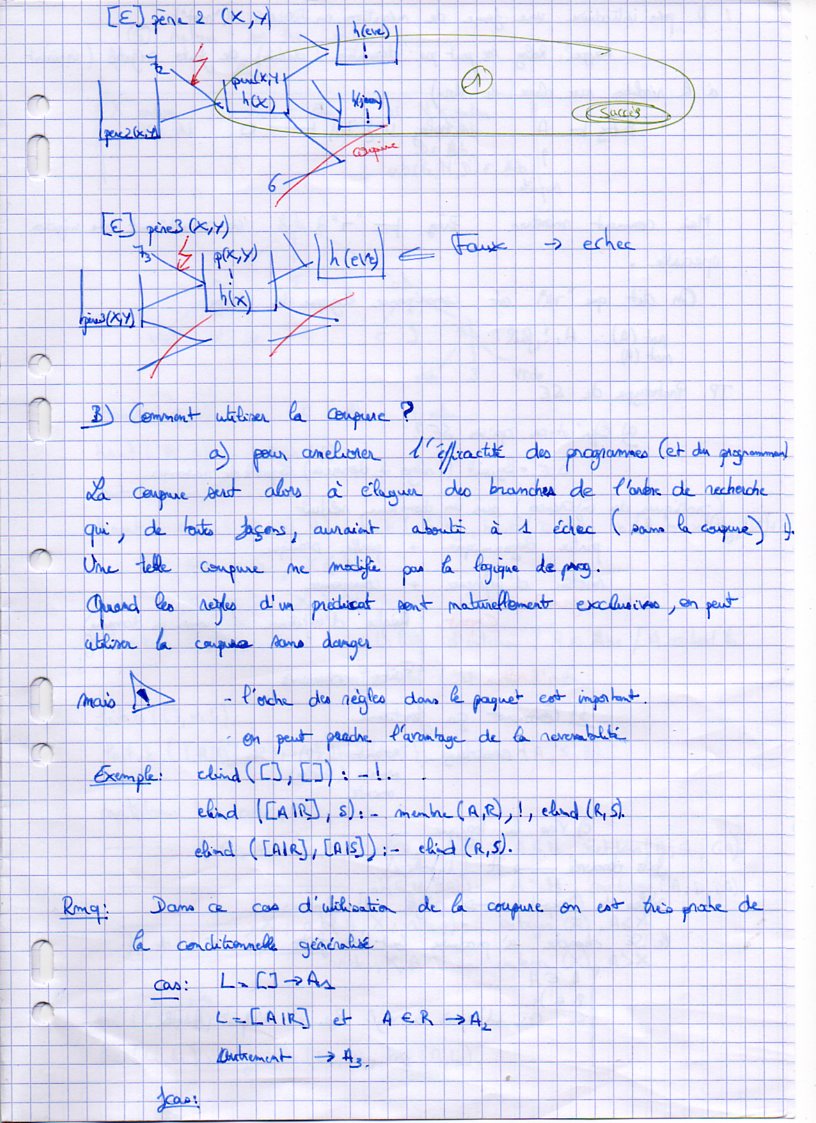 [ε] père 2 (X,Y)
h(eve)
!
7
2
père(X,Y)
h(X)
1
h(jean)
!
succès
père2(X,Y)
coupure
6
[ε] père3(X,Y)
7
3
p(X,Y)
!
h(X)
h(eve) ⇐ Faux → echec
père3(X,Y)
B) Comment utiliser la coupure ?
a) pour ameliorer l'éfficacité des programmes (et du programmeur)
La coupure sert alors à élaguer des branches de l'arbre de recherche
qui, de toute façons, auraient abouté à 1 échec (sans la coupure)
Une telle coupure ne modifie pas la logique de prog.
Quand les règles d'un prédicat sont naturellement exclusives, on peut
utiliser la coupure sans danger
mais ! - l'ordre des règles dans le paquet est important.
- on peut perdre l'avantage de la reversabilité
Exemple: elimd([], []) :- !.
elimd ([A|R], S) :- membre(A,R), !, elimd(R,S).
elimd ([A|R], [A|S]) :- elimd (R,S).
Rmq: Dans ce cas d'utilisation de la coupure on est très proche de
la conditionnelle généralisé
cas: L = [] → A1
L = [A|R] et A ∈ R → A2
Autrement → A3.
fcas: